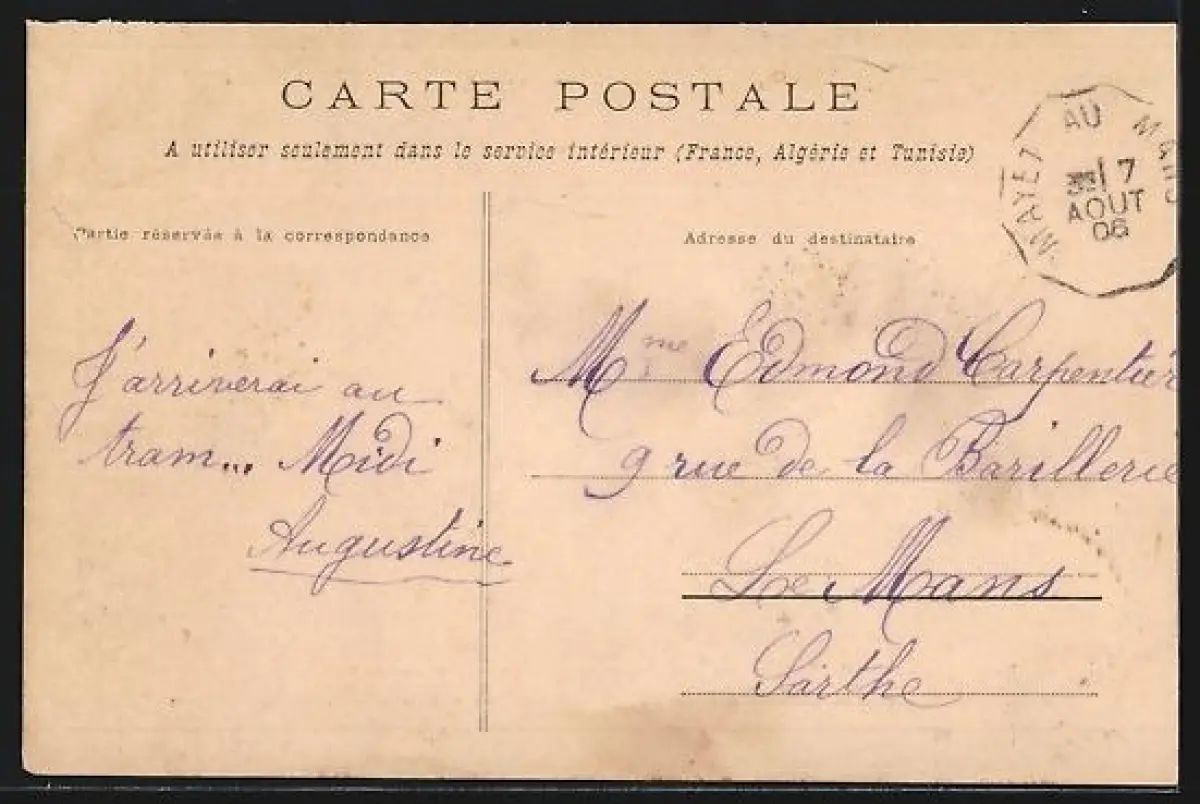 CARTE POSTALE
A utiliser seulement dans le service intérieur (France, Algérie et Tunisie)
Partie réservée à la correspondance
J'arriverai au
tram... Midi
Augustine
Adresse du destinataire
Mme Edmond Carpentier
9 rue de la Barillerie
Le Mans
Sarthe
MAYET AU MANS
7
AOUT
06